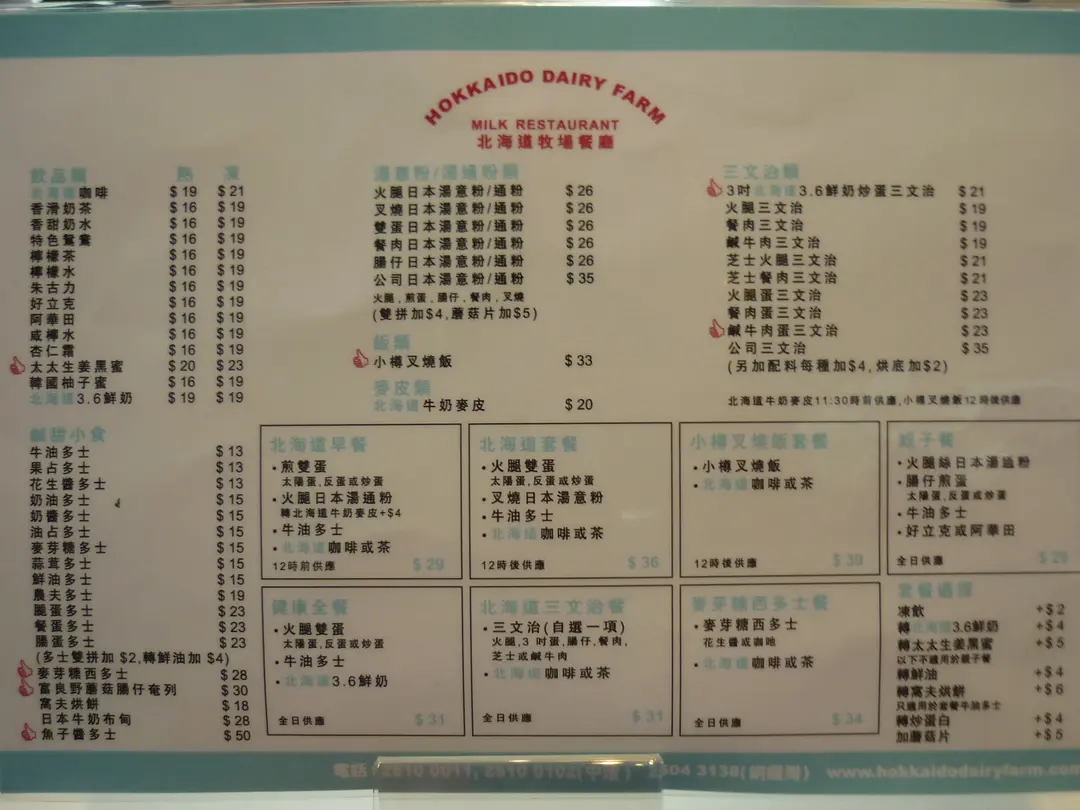 HOKKAIDO DAIRY FARM
MILK RESTAURANT
北海道牧場餐廳
飲品類 熱 凍
北海道咖啡 $19 $21
香滑奶茶 $16 $19
香甜奶水 $16 $19
特色鴛鴦 $16 $19
檸檬茶 $16 $19
檸檬水 $16 $19
朱古力 $16 $19
好立克 $16 $19
阿華田 $16 $19
咸檸水 $16 $19
杏仁霜 $16 $19
太太生姜黑蜜 $20 $23
韓國柚子蜜 $16 $19
北海道3.6鮮奶 $19 $19
湯意粉/湯通粉類
火腿日本湯意粉/通粉 $26
叉燒日本湯意粉/通粉 $26
雙蛋日本湯意粉/通粉 $26
餐肉日本湯意粉/通粉 $26
腸仔日本湯意粉/通粉 $26
公司日本湯意粉/通粉 $35
火腿,煎蛋,腸仔,餐肉,叉燒
(雙拼加$4,蘑菇片加$5)
飯類
小樽叉燒飯 $33
麥皮類
北海道牛奶麥皮 $20
三文治類
3吋北海道3.6鮮奶炒蛋三文治 $21
火腿三文治 $19
餐肉三文治 $19
鹹牛肉三文治 $19
芝士火腿三文治 $21
芝士餐肉三文治 $21
火腿蛋三文治 $23
餐肉蛋三文治 $23
鹹牛肉蛋三文治 $23
公司三文治 $35
(另加配料每種加$4,烘底加$2)
北海道牛奶麥皮11:30時前供應,小樽叉燒飯12時後供應
鹹甜小食
牛油多士 $13
果占多士 $13
花生醬多士 $13
奶油多士 $15
奶醬多士 $15
油占多士 $15
麥芽糖多士 $15
蒜茸多士 $15
鮮油多士 $15
農夫多士 $19
腿蛋多士 $23
餐蛋多士 $23
腸蛋多士 $23
(多士雙拼加 $2,轉鮮油加 $4)
麥芽糖西多士 $28
富良野蘑菇腸仔奄列 $30
窩夫烘餅 $18
日本牛奶布甸 $28
魚子醬多士 $50
北海道早餐
•煎雙蛋
太陽蛋,反蛋或炒蛋
•火腿日本湯通粉
轉北海道牛奶麥皮+$4
•牛油多士
•北海道咖啡或茶
12時前供應 $29
北海道套餐
•火腿雙蛋
太陽蛋,反蛋或炒蛋
•叉燒日本湯意粉
•牛油多士
•北海道咖啡或茶
12時後供應 $36
小樽叉燒飯套餐
•小樽叉燒飯
•北海道咖啡或茶
12時後供應 $39
親子餐
•火腿絲日本湯通粉
•腸仔煎蛋
太陽蛋,反蛋或炒蛋
•牛油多士
•好立克或阿華田
全日供應 $29
健康全餐
•火腿雙蛋
太陽蛋,反蛋或炒蛋
•牛油多士
•北海道3.6鮮奶
全日供應 $31
北海道三文治餐
•三文治(自選一項)
火腿,3 吋蛋,腸仔,餐肉,
芝士或鹹牛肉
•北海道咖啡或茶
全日供應 $31
麥芽糖西多士餐
•麥芽糖西多士
花生醬或咖吔
•北海道咖啡或茶
全日供應 $34
套餐選擇
凍飲 +$2
轉北海道3.6鮮奶 +$4
轉太太生姜黑蜜 +$5
以下不適用於親子餐
轉鮮油 +$4
轉窩夫烘餅 +$6
只適用於套餐牛油多士
轉炒蛋白 +$4
加蘑菇片 +$5
電話: 2810 0011, 2810 0102(中環) 2504 3138(銅鑼灣) www.hokkaidodairyfarm.com